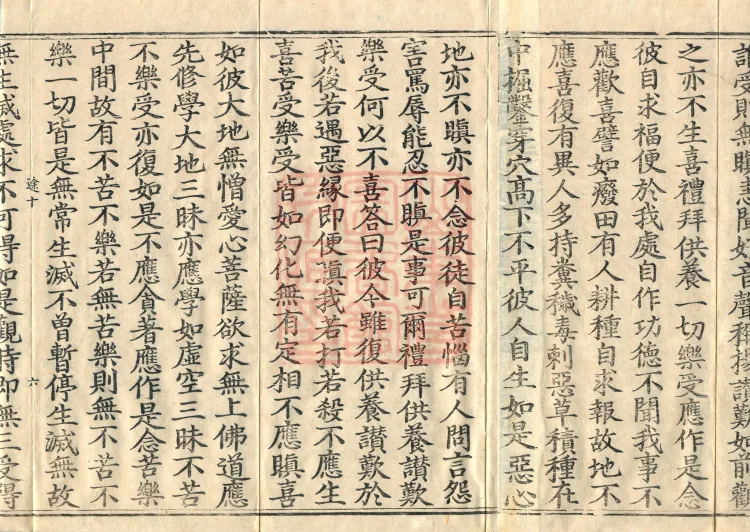 訶受則無瞋恚聞好音聲稱揚讚歎如前觀
之亦不生喜禮拜供養一切樂受應作是念
彼自求福便於我處自作功德不關我事不
應歡喜譬如癈田有人耕種自求報故地不
應喜復有異人多持糞穢毒刺惡草積種在
中掘鑿穿穴高下不平彼人自生如是惡心
地亦不瞋亦不念彼徒自苦惱有人問言怨
害罵辱能忍不瞋是事可爾禮拜供養讚歎
樂受何以不喜答曰彼今雖復供養讚歎於
我後若遇惡緣即便瞋我若打若殺不應生
喜苦受樂受皆如幻化無有定相不應瞋喜
如彼大地無憎愛心菩薩欲求無上佛道應
先修學大地三昧亦應學如虛空三昧不苦
不樂受亦復如是不應貪著應作是念苦樂
中間故有不苦不樂若無苦樂則無不苦不
樂一切皆是無常生滅不曾暫停生滅無故
途十 六
無生滅處求不可得如是觀時即無三受得